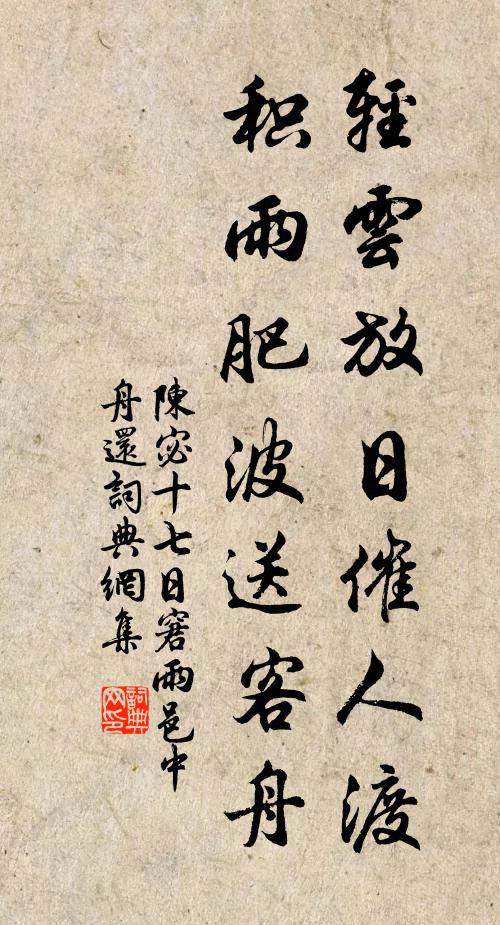 輕雲放日催人渡
积雨肥波送客舟
陳宓十七日窘雨邑中
舟還詞典網集
詞典
网印